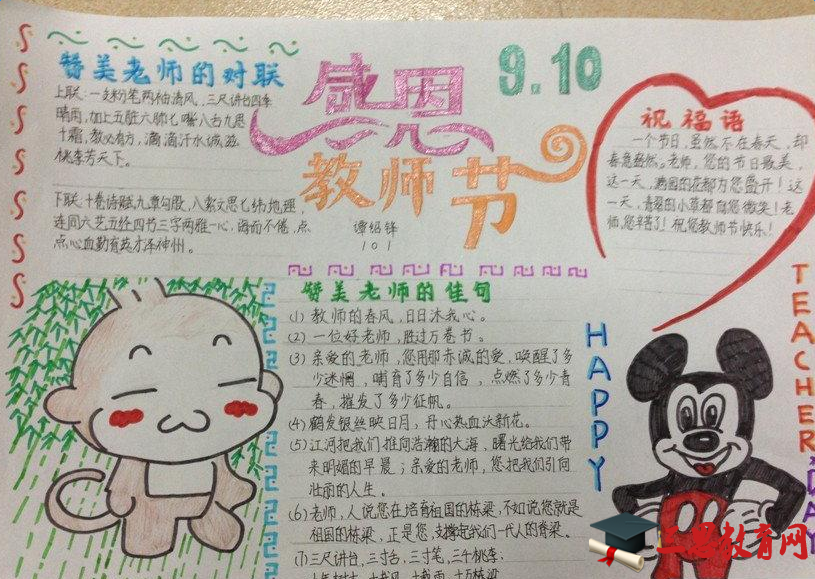 赞美老师的对联
上联:一支粉笔两袖清风,三尺讲台四季
晴雨,加上五脏六腑七嘴八舌九思
十霜,教必有方,滴滴汗水诚滋
桃李芳天下。
下联:十卷诗赋九章勾股,八索文思七纬地理,
连同六艺五经四节三字两雅一心,诲而不倦,点
点心血勤育英才泽神州。
感恩
教师节
9.10
谭绍锋
101
祝福语
一个节日,虽然不在春天,却
春意盎然。老师,您的节日最美,
这一天,满园的花都为您盛开!这
一天,青翠的小草都向您微笑!老
师,您辛苦了!祝您教师节快乐!
赞美老师的佳句
(1)教师的春风,日日沐我心。
(2)一位好老师,胜过万卷书。
(3)亲爱的老师,您用那赤诚的爱,唤醒了多
少迷惘,哺育了多少自信,点燃了多少青
春,摧发了多少征帆。
(4)鹤发银丝映日月,丹心热血沃新花。
(5)江河把我们推向浩瀚的大海,曙光给我们带
来明媚的早晨;亲爱的老师,您把我们引向
壮丽的人生。
(6)老师,人说您在培育祖国的栋梁,不如说您就是
祖国的栋梁,正是您,支撑起我们一代人的脊梁。
(7)三尺讲台,三寸舌,三寸笔,三千桃李;
HAPPY
TEACHER'S DAY
教育网